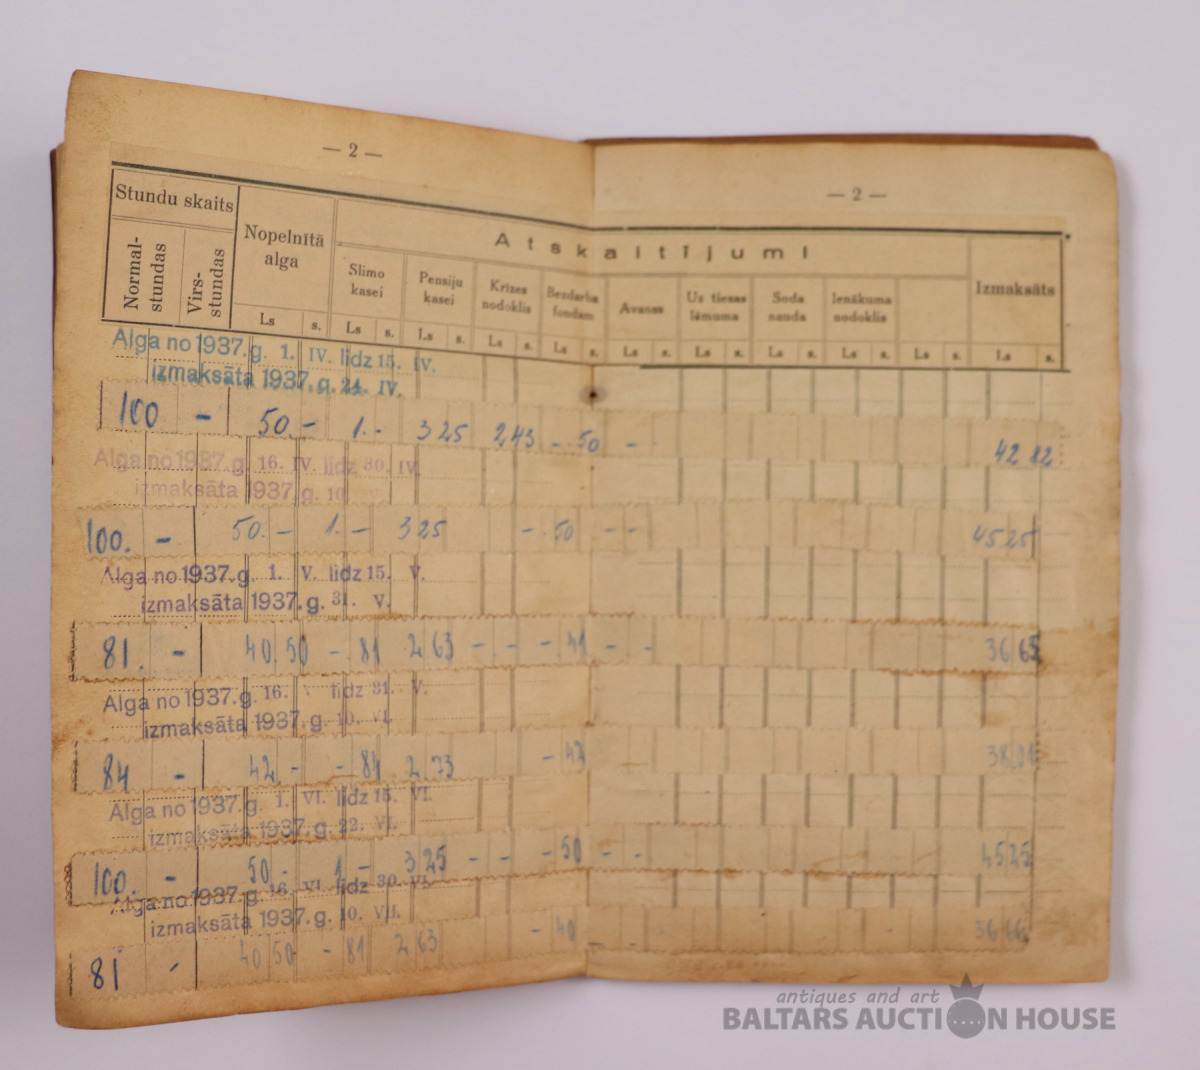 — 2 —
— 2 —
Stundu skaits
Normal-
stundas
Virs-
stundas
Nopelnītā
alga
Atskaitījumi
Slimo
kasei
Pensiju
kasei
Krīzes
nodoklis
Bezdarba
fondam
Avanss
Uz tiesas
lēmuma
Soda
nauda
Ienākuma
nodoklis
Izmaksāts
Ls s. Ls s. Ls s. Ls s. Ls s. Ls s. Ls s. Ls s. Ls s. Ls s. Ls s.
Alga no 1937. g. 1. IV. līdz 15. IV.
izmaksāta 1937. g. 24. IV.
100 - 50. - 1. - 3 25 2 43 - 50 - 42 82
Alga no 1937. g. 16. IV. līdz 30. IV.
izmaksāta 1937. g. 10
100. - 50. - 1. - 3 25 - 50 - - 45 25
Alga no 1937. g. 1. V. līdz 15. V.
izmaksāta 1937. g. 31. V.
81. - 40 50 - 81 2 63 - - - 41 - - 36 65
Alga no 1937. g. 16. V. līdz 31. V.
izmaksāta 1937. g. 10. VI.
84 - 42. - - 84 2 73 - 42 38 01
Alga no 1937. g. 1. VI. līdz 15. VI.
izmaksāta 1937. g. 22. VI.
100. - 50 - 1 - 3 25 - - - 50 - - 45 25
Alga no 1937. g. 16 VI. līdz 30. VI.
izmaksāta 1937. g. 10. VII.
81 - 40 50 - 81 2 63 - 40 - - 36 66
antiques and art
BALTARS AUCTION HOUSE